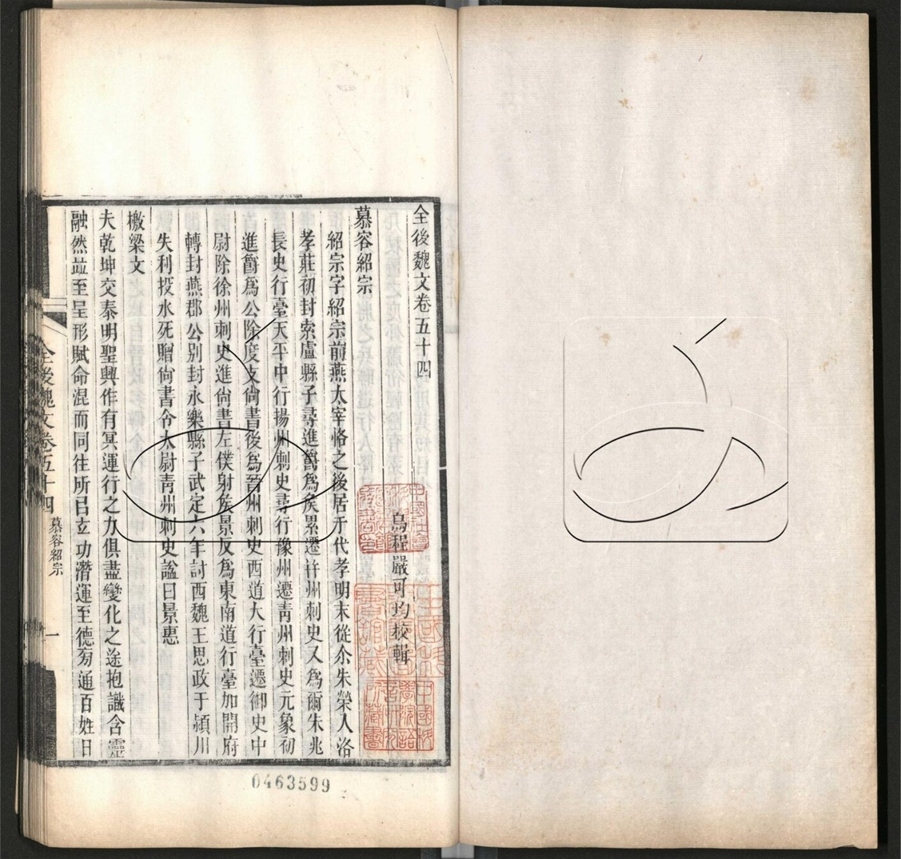 全後魏文卷五十四
烏程嚴可均校輯
慕容紹宗
紹宗字紹宗前燕太宰恪之後居于代孝明末從尒朱榮入洛
孝莊初封索盧縣子尋進爵爲矦累遷幷州刺史又爲爾朱兆
長史行臺天平中行揚州刺史尋行豫州遷青州刺史元象初
進爵爲公除度支尙書後爲晉州刺史西道大行臺遷御史中
尉除徐州刺史進尙書左僕射矦景反爲東南道行臺加開府
轉封燕郡公別封永樂縣子武定六年討西魏王思政于潁川
失利投水死贈尙書令太尉青州刺史諡曰景惠
檄梁文
夫乾坤交泰明聖興作有冥運行之力俱盡變化之途抱識含靈
融然竝至呈形賦命混而同往所㠯立功潛運至德㫄通百姓日
全後魏文卷五十四
慕容紹宗
一
0463599